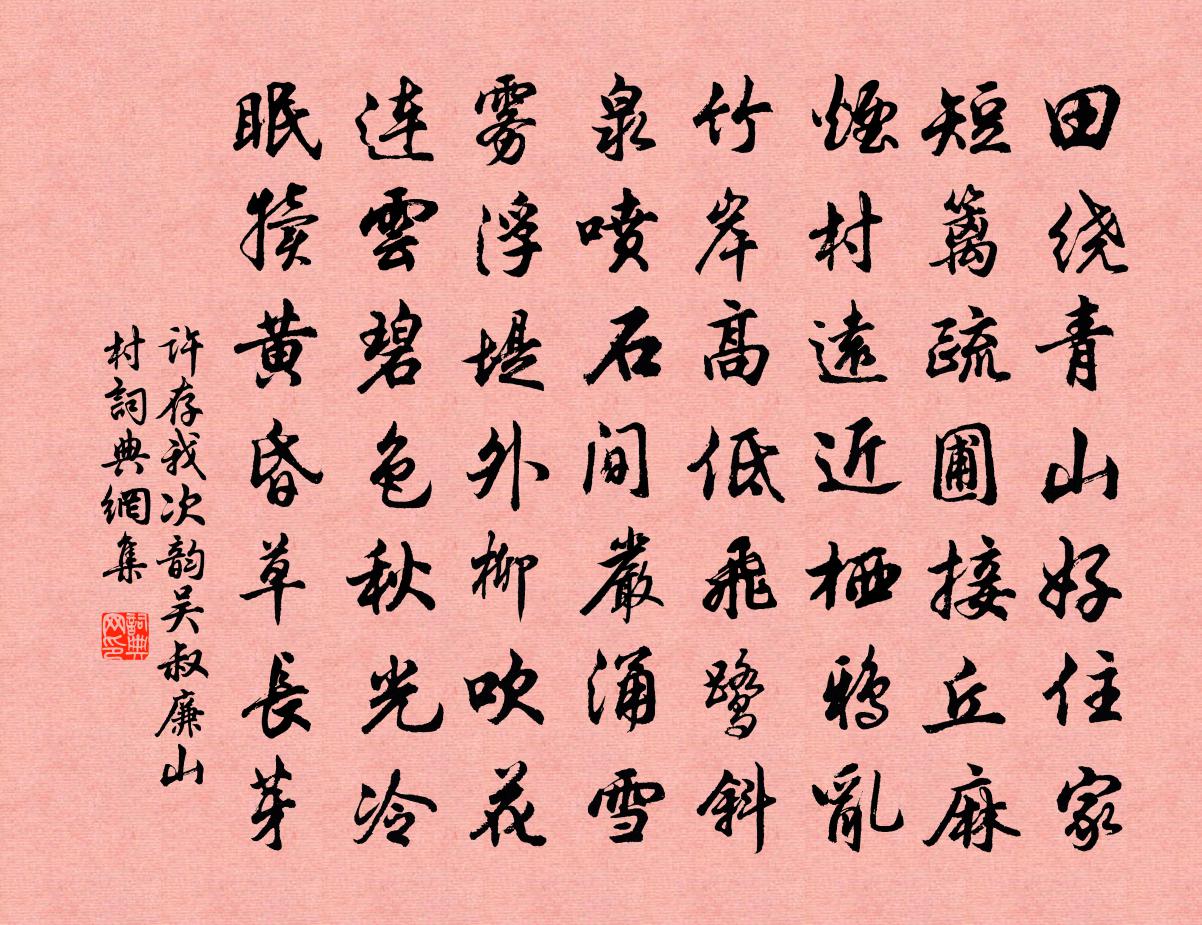 田绕青山好住家
短篱疏圃接丘麻
煙村遠近栖鸦亂
竹岸高低飛鹭斜
泉喷石间嚴涌雪
雾浮堤外柳吹花
连雲碧色秋光冷
眠犊黄昏草長芽
许存我次韵吴叔廉山
村詞典網集
詞典
网印